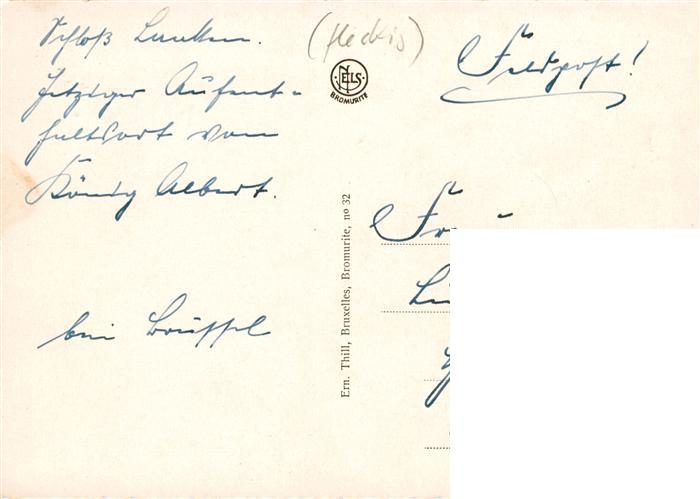 Schloß Laeken.
Jetziger Aufent=
haltsort von
König Albert.
bei Brüssel
NELS
BROMURITE
Ern. Thill, Bruxelles, Bromurite, no 32
Feldpost!